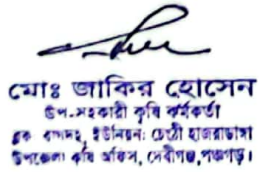 মোঃ জাকির হোসেন
উপ-সহকারী কৃষি কর্মকর্তা
ব্লক ইউনিয়ন: চেংঠী হাজরাডাঙ্গা
উপজেলা কৃষি অফিস, দেবীগঞ্জ, পঞ্চগড়।